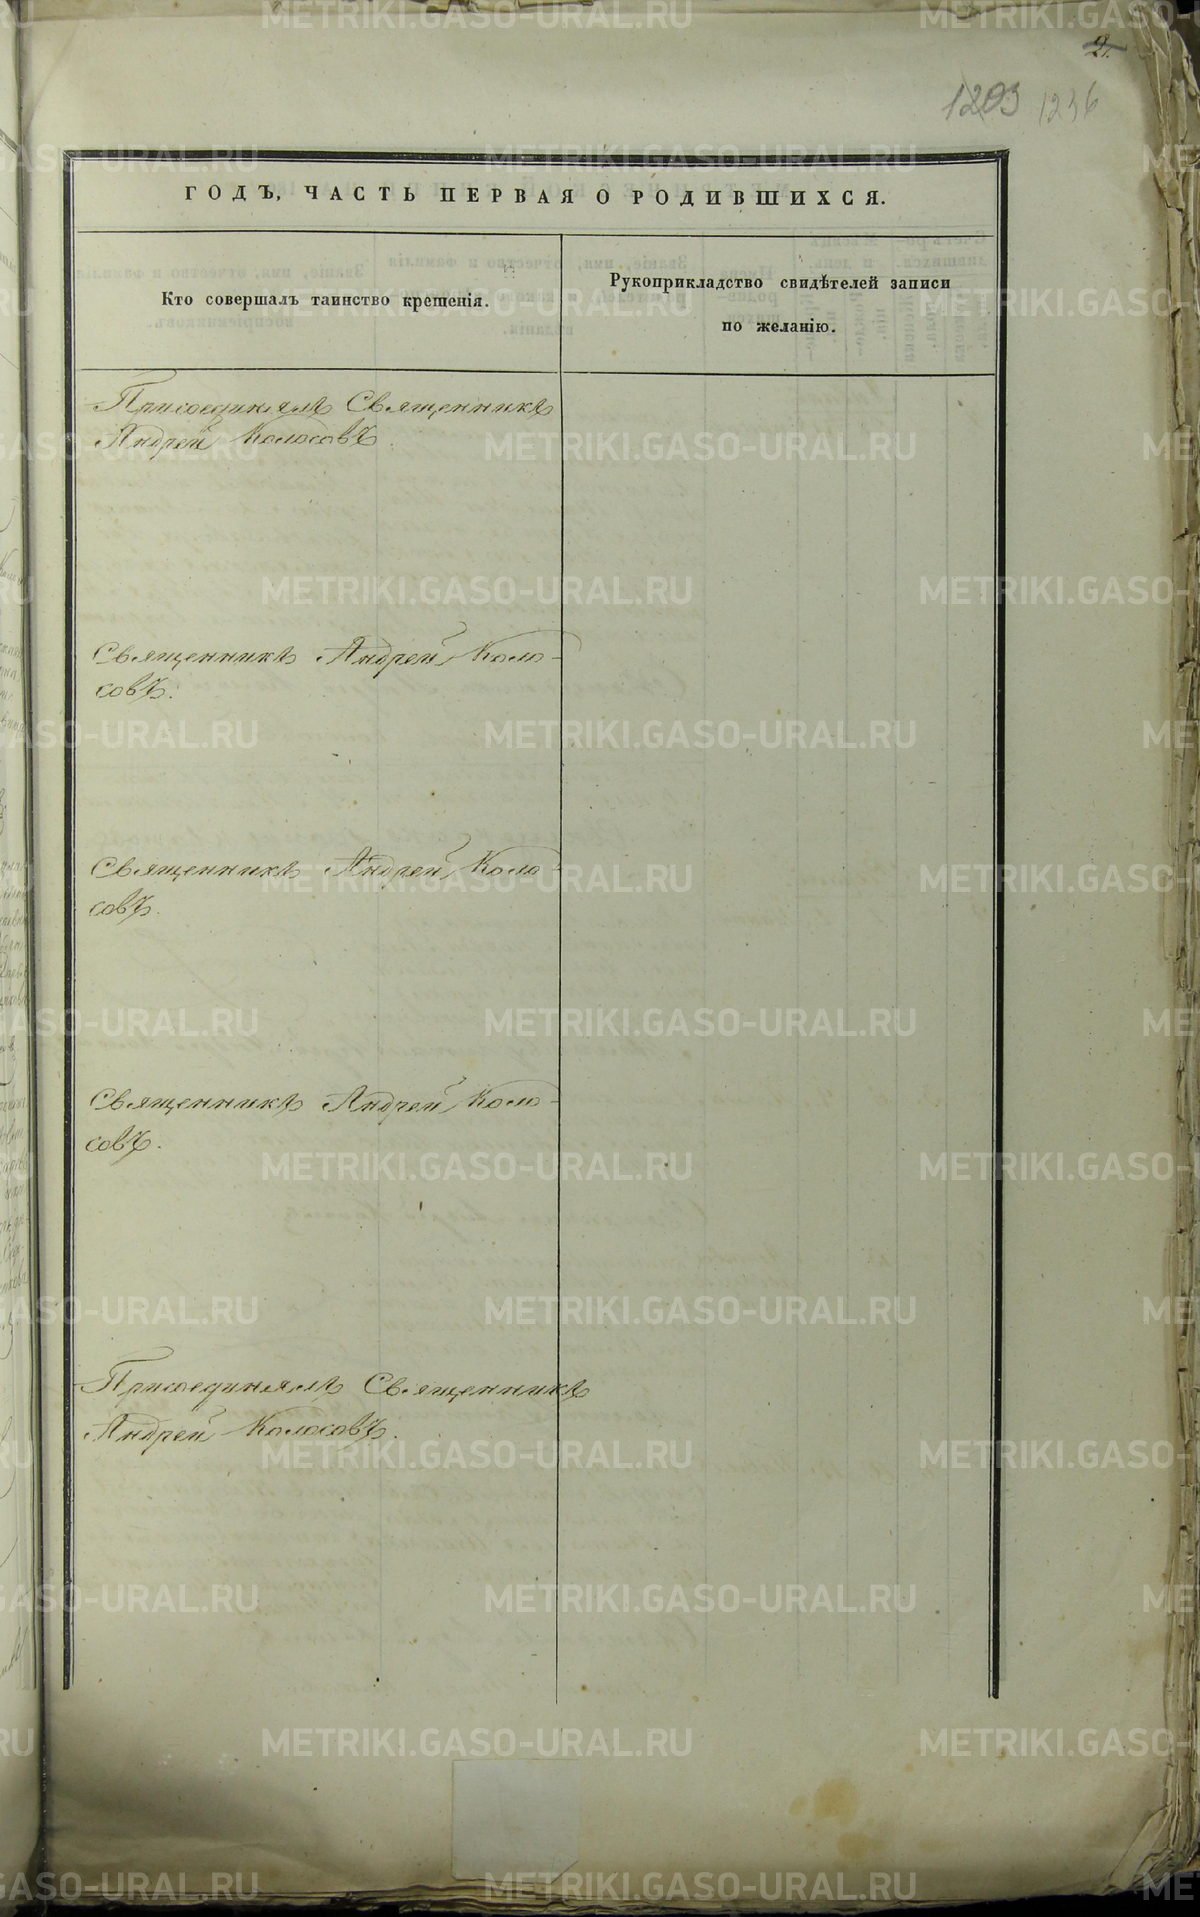 2.
1203 1236
ГОДЪ, ЧАСТЬ ПЕРВАЯ О РОДИВШИХСЯ.
Кто совершалъ таинство крещенія.
Рукоприкладство свидѣтелей записи
по желанію.
Присоединялъ Священникъ
Андрей Колосовъ.
Священникъ Андрей Коло-
совъ.
Священникъ Андрей Коло-
совъ.
Священникъ Андрей Коло-
совъ.
Присоединялъ Священникъ
Андрей Колосовъ.
METRIKI.GASO-URAL.RU